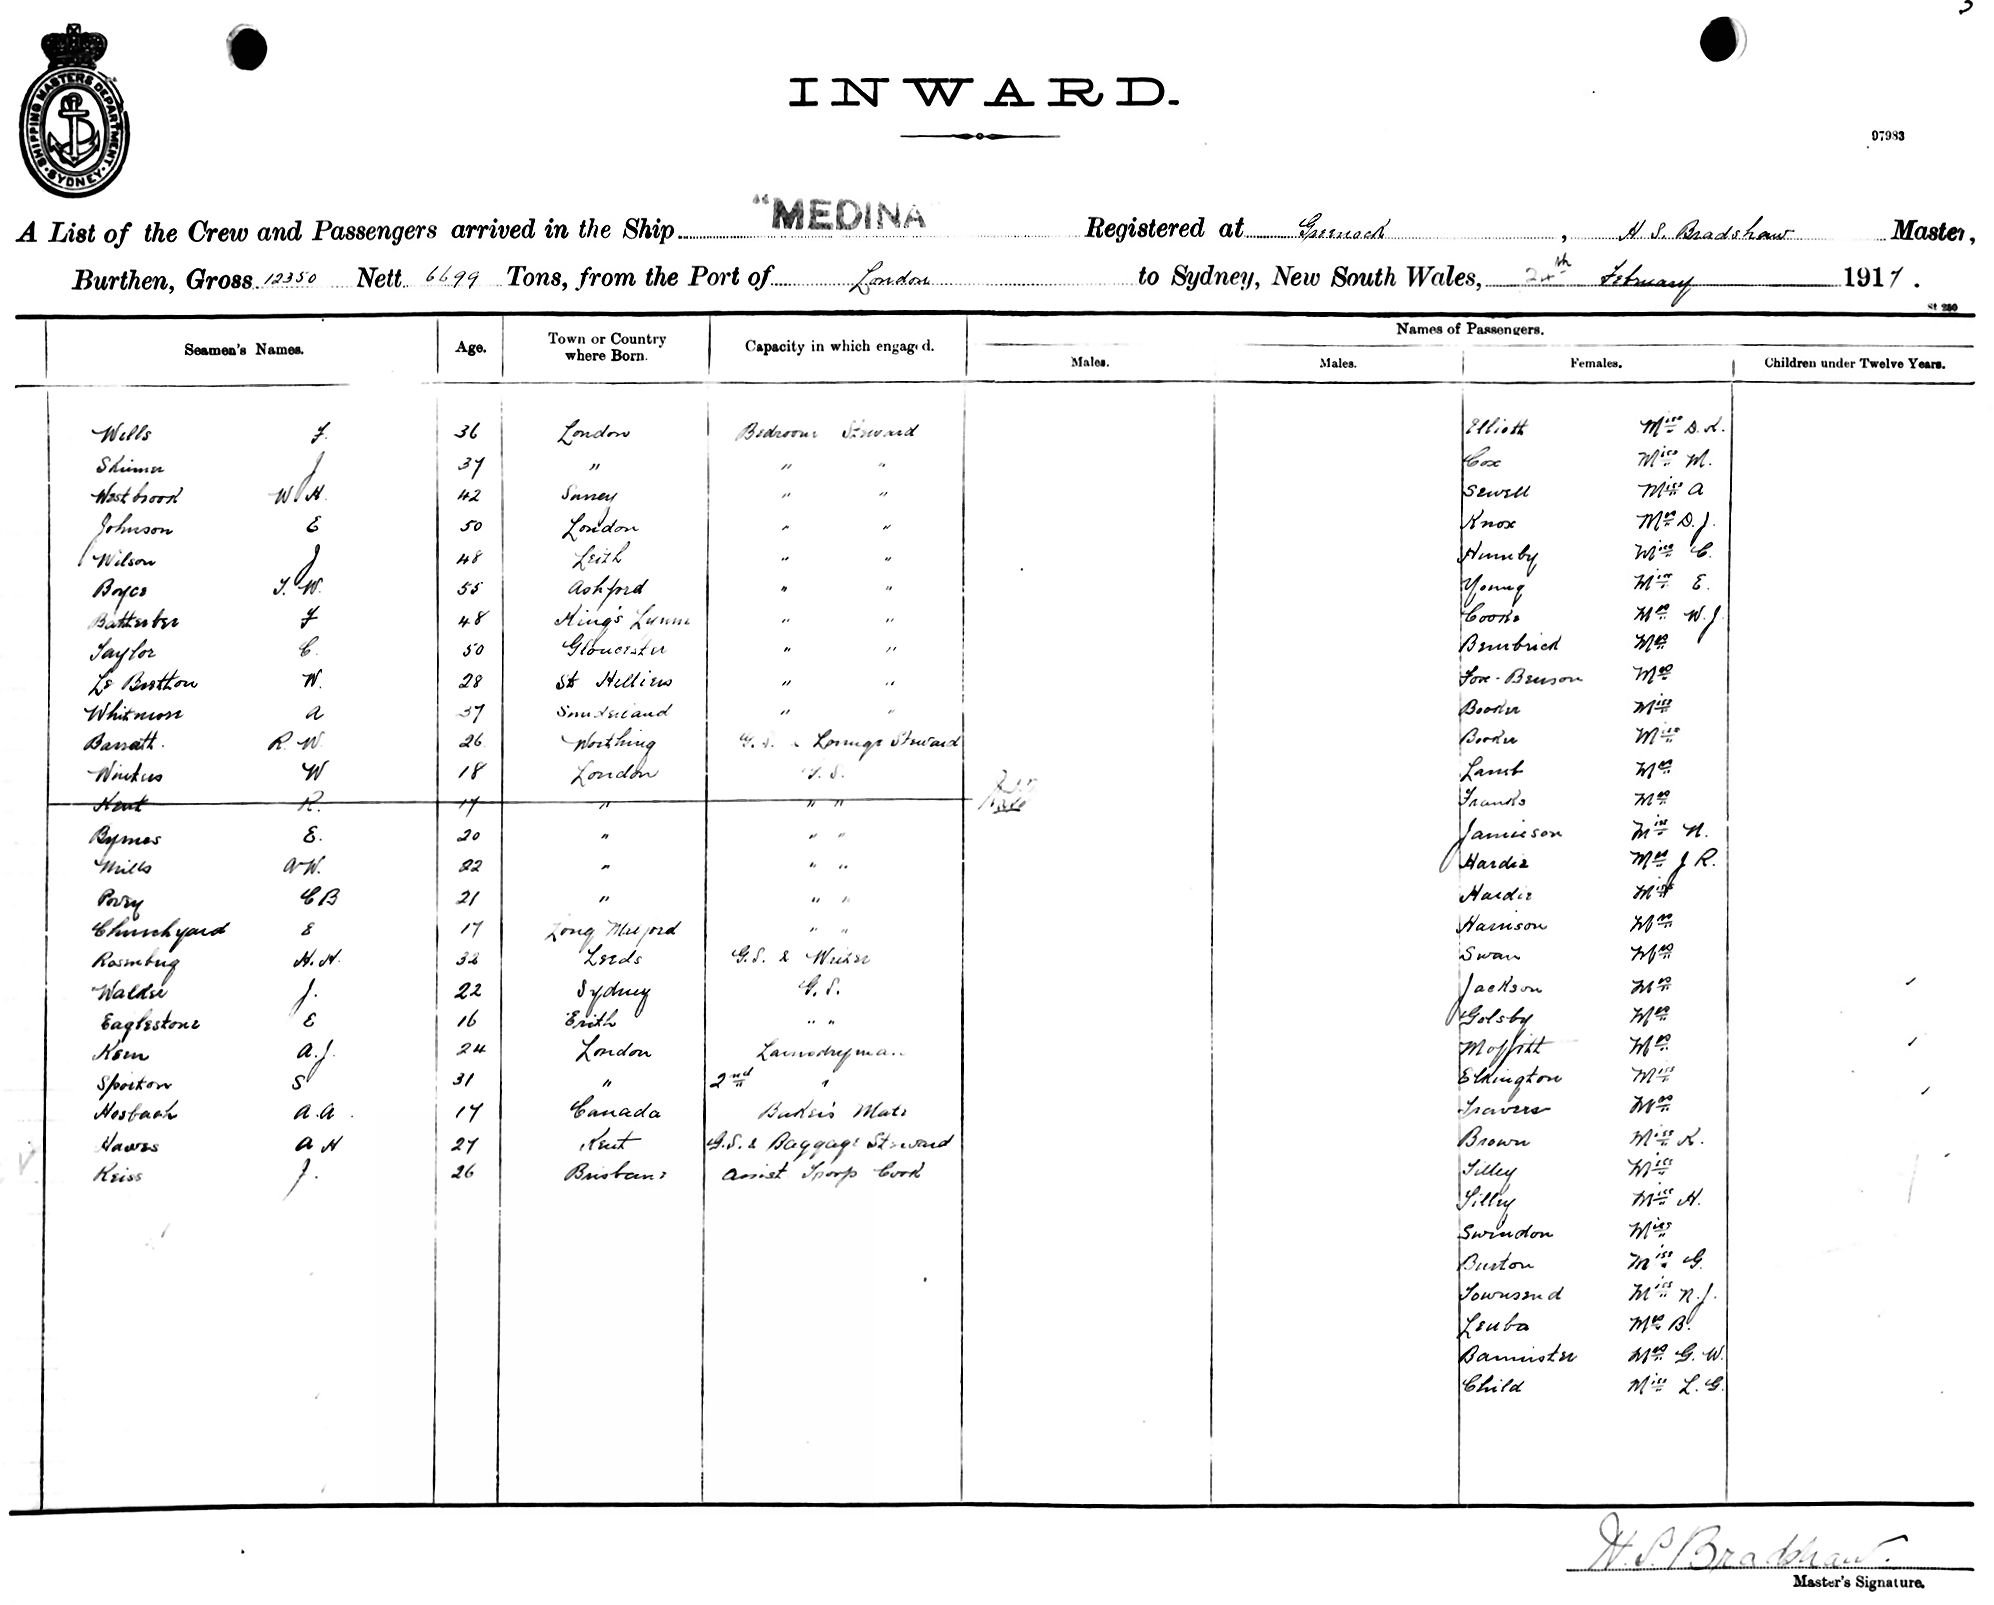 SHIPPING MASTERS DEPARTMENT. SYDNEY.
INWARD.
97983
A List of the Crew and Passengers arrived in the Ship "MEDINA" Registered at Greenock, H S. Bradshaw Master,
Burthen, Gross 12350 Nett 6699 Tons, from the Port of London to Sydney, New South Wales, 24th February 1917.
St 280
Names of Passengers.
Seamen's Names. Age. Town or Country where Born. Capacity in which engaged. Males. Males. Females. Children under Twelve Years.
Wells F. 36 London Bedroom Steward Elliott Miss D.K.
Skinner J 37 " " " Cox Miss M.
Westbrook W H. 42 Surrey " " Sewell Miss A
Johnson E 50 London " " Knox Mrs D.J.
Wilson J 48 Leith " " Humby Miss C.
Boyce T. W. 55 Ashford " " Young Miss E.
Batterbee F 48 King's Lynn " " Cooke Mrs W.J.
Taylor C. 50 Gloucester " " Bembrick Mrs
Le Bretton W. 28 St Helliers " " Fox-Benson Mrs
Whitmore A 37 Sunderland " " Booker Miss
Barratt. R. W. 26 Worthing G.S. & Lounge Steward Booker Miss
W 18 London G.S. Lamb Mrs
Kent R. 17 " " " Franks Mrs
Bymes E. 20 " " " Jamieson Miss N.
Mills A W. 22 " " " Hardie Mrs J R.
Povey C B 21 " " " Hardie Miss
Churchyard E 17 Long Melford " " Harrison Mrs
Rosenbug H. H. 32 Leeds G.S. & Writer Swan Mrs
Walder J. 22 Sydney G.S. Jackson Mrs
Eaglestone E 16 Erith " " Golsby Mrs
Kem A.J. 24 London Laundryman Moffitt Mrs
Sporton S 31 " 2nd " Elkington Miss
Hosbach A.A. 17 Canada Baker's Mate Travers Mrs
Hawes A H 27 Kent G.S. & Baggage Steward Brown Miss K.
Keiss J. 26 Brisbane Assist Troop Cook Tilley Miss
Tilley Miss H.
Swindon Miss
Burton Miss G.
Townsend Miss N.J.
Leuba Mrs B.
Bannister Mrs G. W.
Child Miss L. G.
H. S. Bradshaw.
Master's Signature.